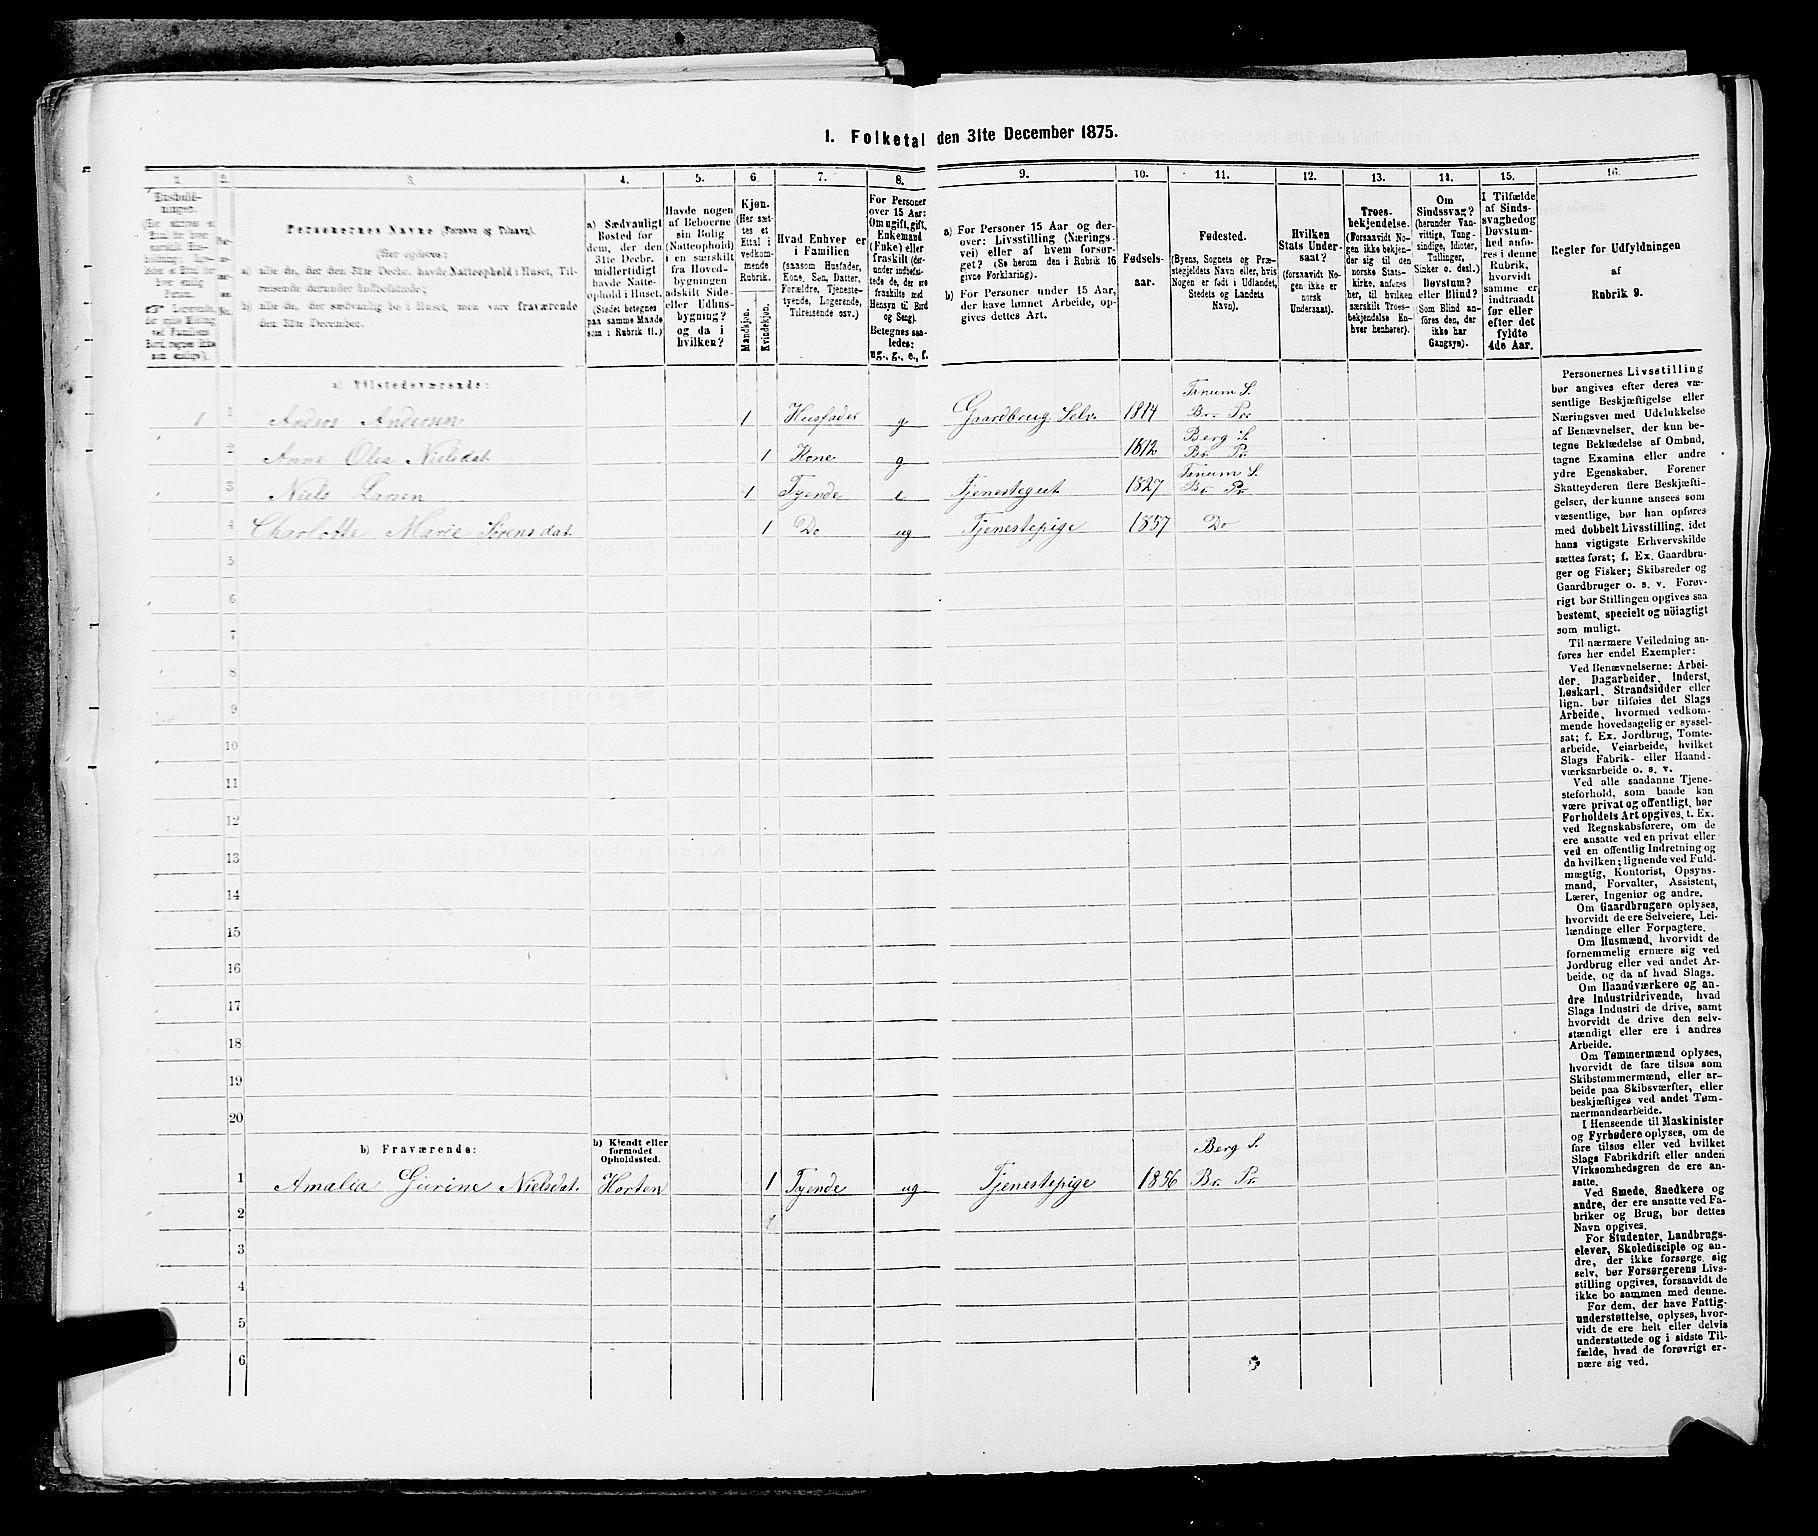 1. Folketal den 31te December 1875.
1.
2.
3.
4.
5.
6.
7.
8.
9.
10.
11.
12.
13.
14.
15.
16.
Personernes Navne (Fornavn og Tilnavn).
(Her opføres:
a) alle de, der den 31te Decbr. havde Natteophold i Huset, Tilreisende derunder indbefattede;
b) alle de, der sædvanlig bo i Huset, men vare fraværende den 31te December.
a) Sædvanligt
Bosted for
dem, der den
31te Decbr.
midlertidigt
havde Natteophold i Huset.
(Stedet betegnes
paa samme Maade
som i Rubrik 11.)
Havde nogen
af Beboerne
sin Bolig
(Natteophold)
i en særskilt
fra Hovedbygningen
adskilt Side-
eller Udhusbygning?
og da i
hvilken?
Kjøn.
(Her sættes et
Ettal i
vedkommende
Rubrik.
Mandkjøn.
Kvindekjøn.
Hvad Enhver er
i Familien
(saasom Husfader,
Kone, Søn, Datter,
Forældre, Tjenestetyende, Logerende,
Tilreisende osv.).
For Personer
over 15 Aar:
Om ugift, gift,
Enkemand
(Enke) eller
fraskilt (derunder indbefattede de, der ere
fraskilte med
Hensyn til Bord
og Seng).
Betegnes saaledes:
ug., g., e., f.
a) For Personer 15 Aar og derover: Livsstilling (Næringsvei) eller af hvem forsørget? (Se herom den i Rubrik 16
givne Forklaring).
b) For Personer under 15 Aar,
der have lønnet Arbeide, opgives dettes Art.
Fødselsaar.
Fødested.
(Byens, Sognets og Præstegjeldets Navn eller, hvis
Nogen er født i Udlandet,
Stedets og Landets
Navn).
Hvilken
Stats Undersaat?
(forsaavidt Nogen ikke er
norsk
Undersaat).
Troesbekjendelse.
(Forsaavidt Nogen ikke bekjender sig til den
norske Statskirke, anføres
her, til hvilken
særskilt Troesbekjendelse Enhver henhører).
Om
Sindssvag?
(herunder Vanvittige, Tungsindige, Idioter,
Tullinger,
Sinker o. desl.)
Døvstum?
eller Blind?
(Som Blind anføres den, der
ikke har
Gangsyn).
I Tilfælde
af Sindssvaghed og
Døvstumhed anføres i denne
Rubrik,
hvorvidt
samme er
indtraadt
før eller
efter det
fyldte
4de Aar.
Regler for Udfyldningen
af
Rubrik 9.
a) Tilstedeværende:
1 1 Anders Andersen 1 Husfader g Gaardbrug. Selv. 1814 Tanum S. Br. Pr.
2 Anne Olea Nielsdat. 1 Kone g 1812 Berg S. Br. Pr.
3 Niels Larsen 1 Tyende e Tjenestegut 1827 Tanum S. Br. Pr.
4 Charlotte Marie Sørensdat. 1 Do ug Tjenestepige 1857 Do
5
6
7
8
9
10
11
12
13
14
15
16
17
18
19
20
b) Fraværende:
b) Kjendt eller
formodet
Opholdssted.
1 Amalia Gurine Nielsdat. Horten 1 Tyende ug Tjenestepige 1856 Berg S. Br. Pr.
2
3
4
5
6
Personernes Livsstilling
bør angives efter deres væsentlige Beskjæftigelse eller
Næringsvei med Udelukkelse
af Benævnelser, der kun betegne Beklædelse af Ombud,
tagne Examina eller andre
ydre Egenskaber. Forener
Skatteyderen flere Beskjæftigelser, der kunne ansees som
væsentlige, bør han opføres
med dobbelt Livsstilling, idet
hans vigtigste Erhvervskilde
sættes først; f. Ex. Gaardbruger og Fisker; Skibsreder og
Gaardbruger o. s. v. Forøvrigt bør Stillingen opgives saa
bestemt, specielt og nöiagtigt
som muligt.
Til nærmere Veiledning anføres her endel Exempler:
Ved Benævnelserne: Arbeider, Dagarbeider, Inderst,
Løskarl, Strandsidder eller
lign. bør tilføies det Slags
Arbeide, hvormed vedkommende hovedsagelig er sysselsat; f. Ex. Jordbrug, Tomtearbeide, Veiarbeide, hvilket
Slags Fabrik- eller Haandværksarbeide o. s. v.
Ved alle saadanne Tjenesteforhold, som baade kan
være privat og offentligt, bør
Forholdets Art opgives, t. Ex.
ved Regnskabsførere, om de
ere ansatte ved en privat eller
ved en offentlig Indretning og
da hvilken; lignende ved Fuldmægtig, Kontorist, Opsynsmand, Forvalter, Assistent,
Lærer, Ingeniør og andre.
Om Gaardbrugere oplyses,
hvorvidt de ere Selveiere, Leilændinge eller Forpagtere.
Om Husmænd, hvorvidt de
fornemmelig ernære sig ved
Jordbrug eller ved andet Arbeide, og da af hvad Slags.
Om Haandværkere og andre Industridrivende, hvad
Slags Industri de drive, samt
hvorvidt de drive den selvstændigt eller ere i andres
Arbeide.
Om Tømmermænd oplyses,
hvorvidt de fare tilsøs som
Skibstømmermænd, eller arbeide paa Skibsværfter, eller
beskjæftiges ved andet Tømmermandsarbeide.
I Henseende til Maskinister
og Fyrbødere oplyses, om de
fare tilsøs eller ved hvilket
Slags Fabrikdrift eller anden
Virksomhedsgren de ere ansatte.
Ved Smede, Snedkere og
andre, der ere ansatte ved Fabriker og Brug, bør dettes
Navn opgives.
For Studenter, Landbrugselever, Skoledisciple og andre, der ikke forsørge sig
selv, bør Forsørgerens Livsstilling opgives, forsaavidt de
ikke bo sammen med denne.
For dem, der have Fattigunderstøttelse, oplyses, hvorvidt de ere helt eller delvis
understøttede og i sidste Tilfælde, hvad de forøvrigt ernære sig ved.